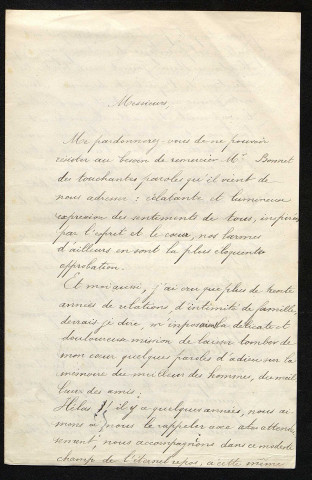 Messieurs,
Me pardonnerez-vous de ne pouvoir
résister au besoin de remercier Mr Bonnet
des touchantes paroles qu'il vient de
nous adresser : éclatante et lumineuse
expression des sentiments de tous, inspirée
par l'esprit et le cœur, nos larmes
d'ailleurs en sont la plus éloquente
approbation.
Et moi aussi, j'ai cru que plus de trente
années de relations, d'intimité de famille
devrais-je dire, m'imposaient la délicate et
douloureuse mission de laisser tomber de
mon cœur quelques paroles d'adieu sur la
mémoire du meilleur des hommes, du meil-
leur des amis.
Hélas ! il y a quelques années, nous ai-
mons à nous le rappeler avec attendris-
sement, nous accompagnions dans ce modeste
champ de l'éternel repos, à cette même